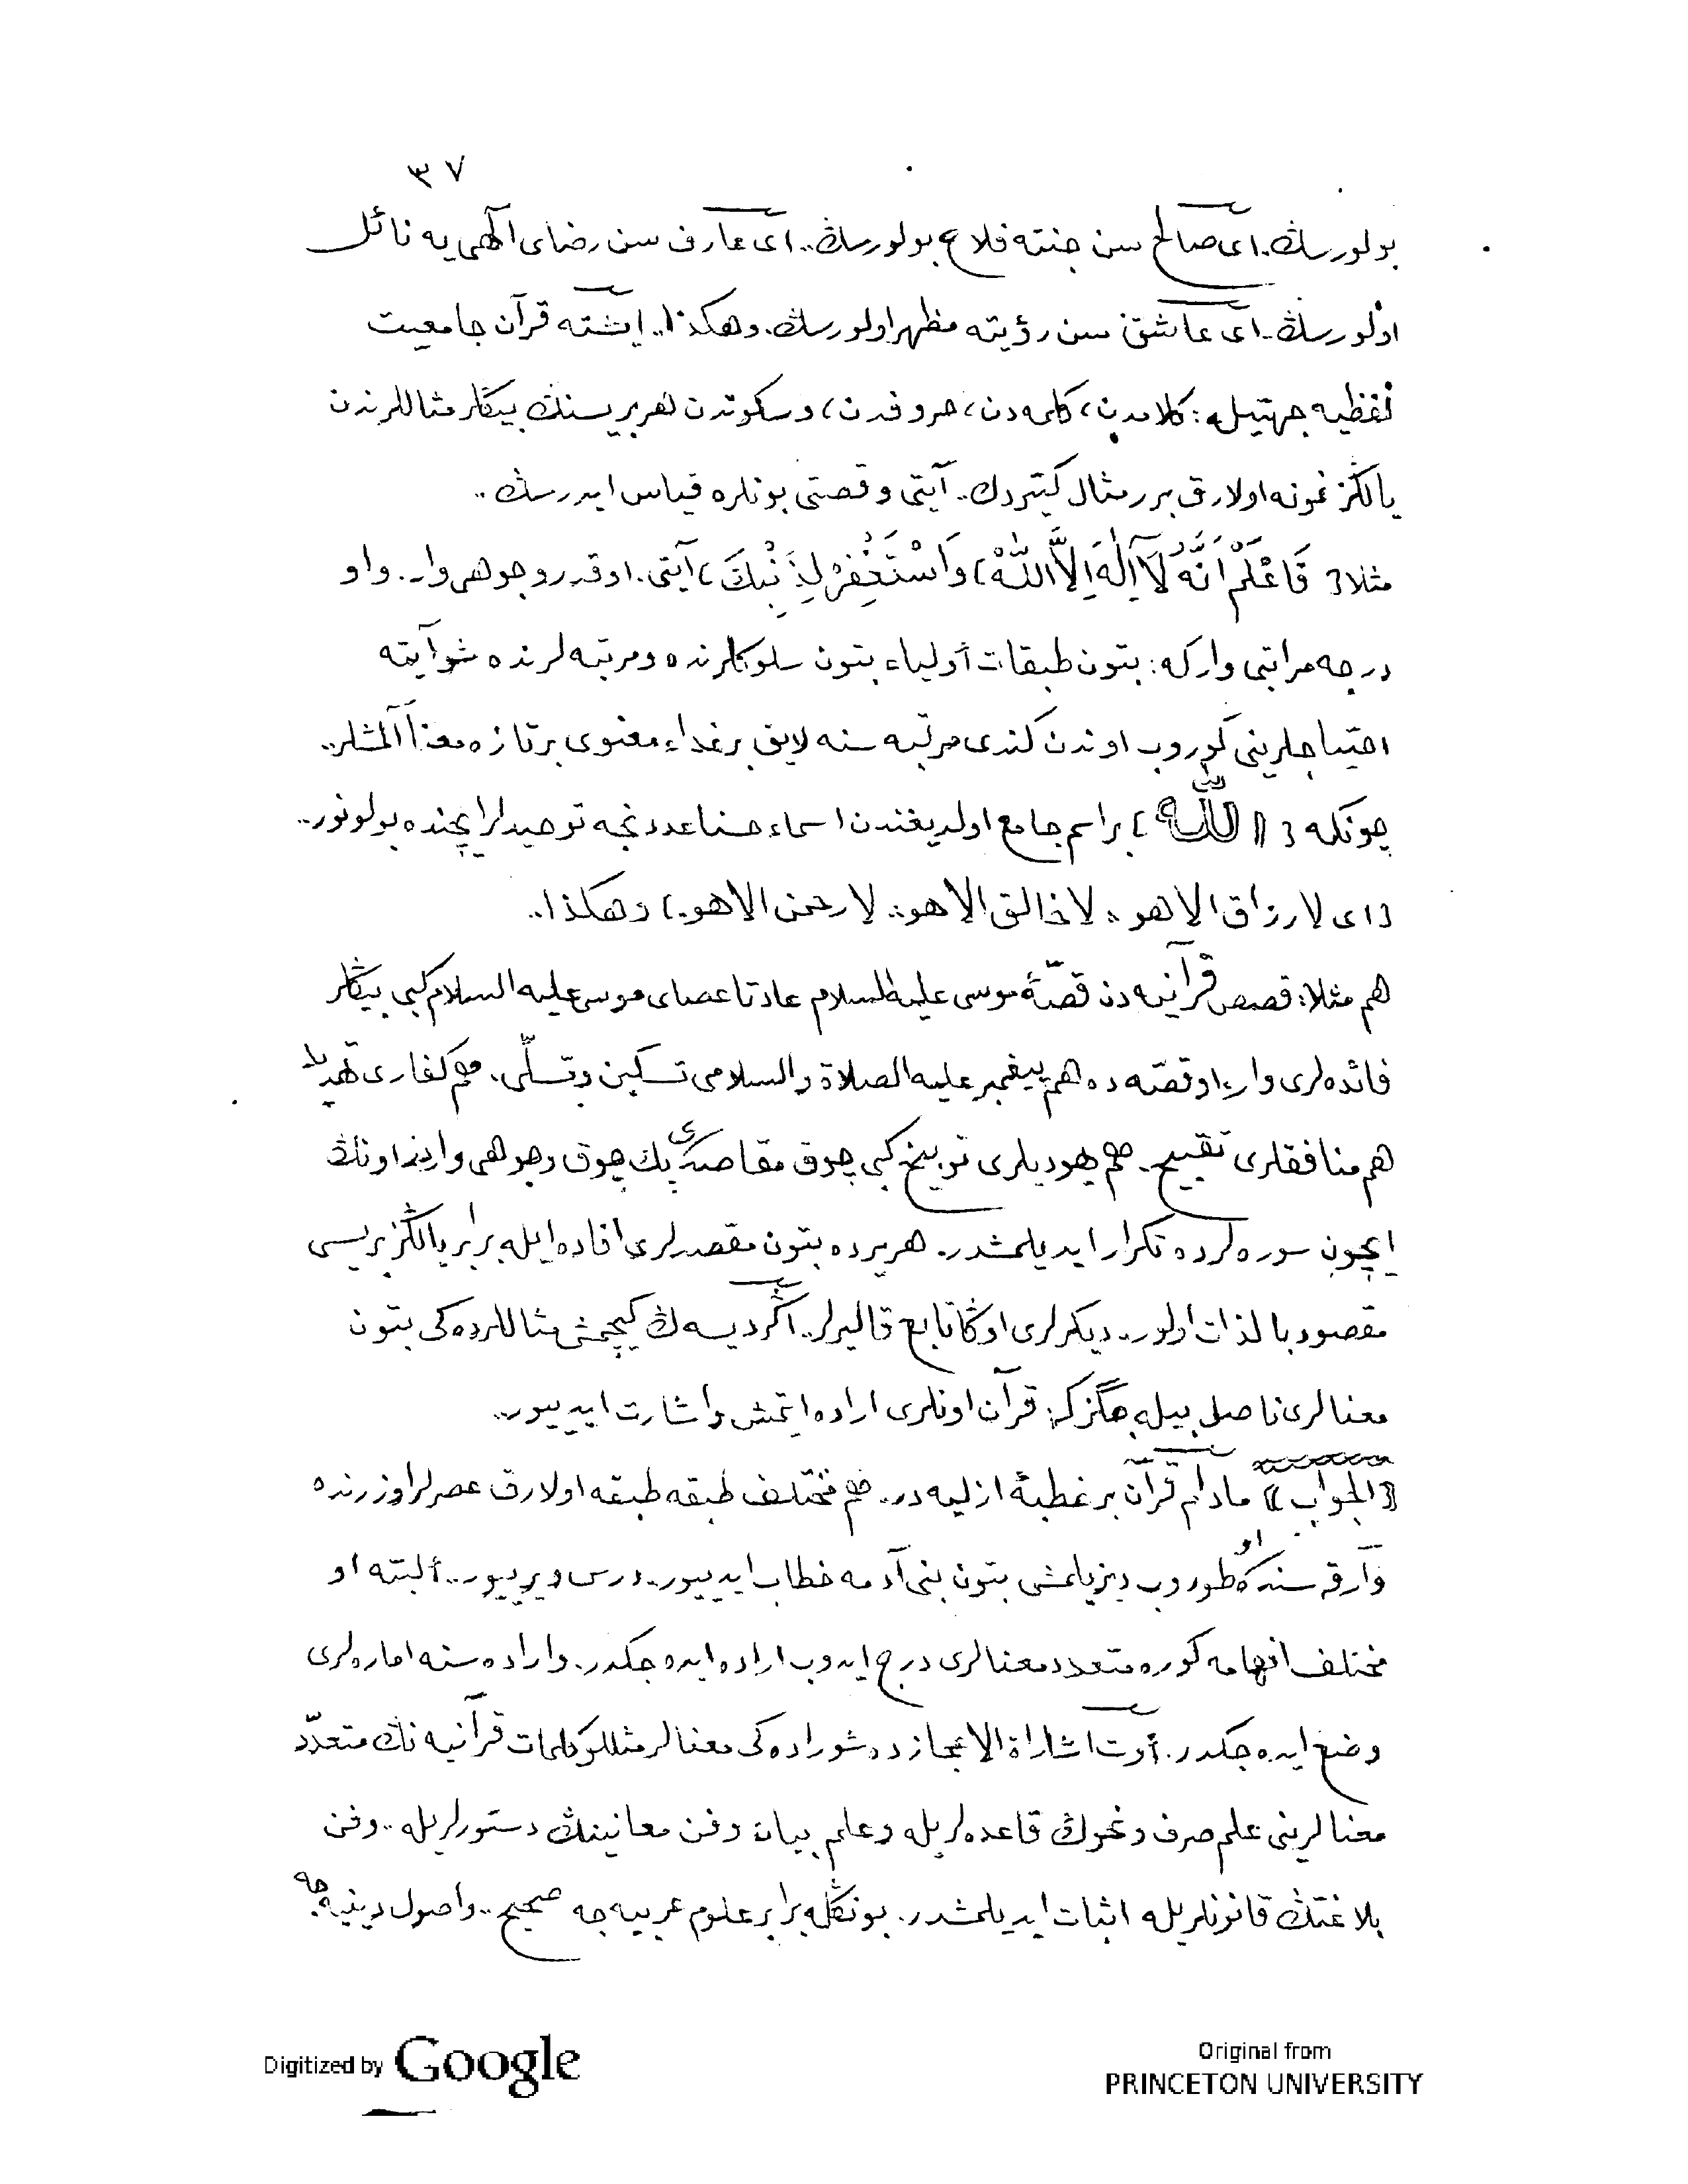 ٣٧
بولورسڭ. ای صالح سن جنته فلاح بولورسڭ.. ای عارف سن رضای آلٰهی یه نائل
اولورسڭ. ای عاشق سن رؤیته مظهر اولورسڭ. وهكذا.. ایشته قرآن جامعیت
لفظیه جهتیله: كلامدن، كلمه دن، حروفدن، وسكوتدن هر بریسنڭ بیڭلر مثاللرندن
یالڭز نمونه اولارق برر مثال كتیردك. آیتی وقصتی بونلره قیاس ایدرسڭ..
مثلا﴿ فَاعْلَمْ اَنَّهُ لَآ اِلٰهَ اِلاَّ اللّٰهُ، وَاسْتَغْفِرْ لِذَنْبِكَ ﴾ آیتی. اوقدر وجوهی وار. واو
درجه مراتبی واركه: بتون طبقات أولیاء بتون سلوكلرنده ومرتبه لرنده شو آیته
احتیاجلرینی كوروب اوندن كندی مرتبه سنه لایق بر غداء معنوی بر تازه معنا آلمشلر..
چونكه ﴿ اللّٰه ﴾ بر اسم جامع اولدیغندن اسماء حسنا عددنجه توحیدلر ایچنده بولونور..
﴿ ای لا رزاق الا هو.. لا خالق الا هو.. لا رحمن الا هو. ﴾ وهكذا..
هم مثلا: قصص قرآنیه دن قصّۀ موسی علیه السلام عادتا عصای موسی علیه السلام كبی بیڭلر
فائده لری وار. اوقصّه ده هم پیغمبر علیه الصلاة والسلامی تسكین وتسلّی. هم كفاری تهدید
هم منافقلری تقبیح. هم یهودیلری توبیخ كبی چوق مقاصدی پك چوق وجوهی واردر اونڭ
ایچون سوره لرده تكرار ایدیلمشدر. هر یرده بتون مقصدلری افاده ایله برابر یالڭز بریسی
مقصود بالذات اولور.. دیكرلری اوڭا تابع قالیرلر. اڭر دیسه ڭ كچمش مثاللرده كی بتون
معنالری ناصل بیله جگز كه: قرآن اونلری اراده ایتمش واشارت ایدییور..
﴿ الجواب ﴾ مادام قرآن بر خطبۀ ازلیه در. هم مختلف طبقه طبقه اولارق عصرلر اوزرنده
وآرقه سنده او طوروب دیزیلمش بتون بنی آدمه خطاب ایدییور.. درس ویرییور.. ألبته او
مختلف افهامه كوره متعدد معنالری درج ایدوب اراده ایده جكدر. واراده سنه اماره لری
وضع ایده جكدر. أوت اشاراة الاعجازده شوراده كی معنالر مثللو كلمات قرآنیه نڭ متعدّد
معنالرینی علم صرف ونحوڭ قاعده لریله وعلم بیان وفن معانینڭ دستورلریله.. وفن
بلاغتڭ قانونلریله اثبات ایدیلمشدر. بونڭله برابر علوم عربیه جه صحیح.. واصول دینیه جه
Digitized by Google
Original from
PRINCETON UNIVERSITY